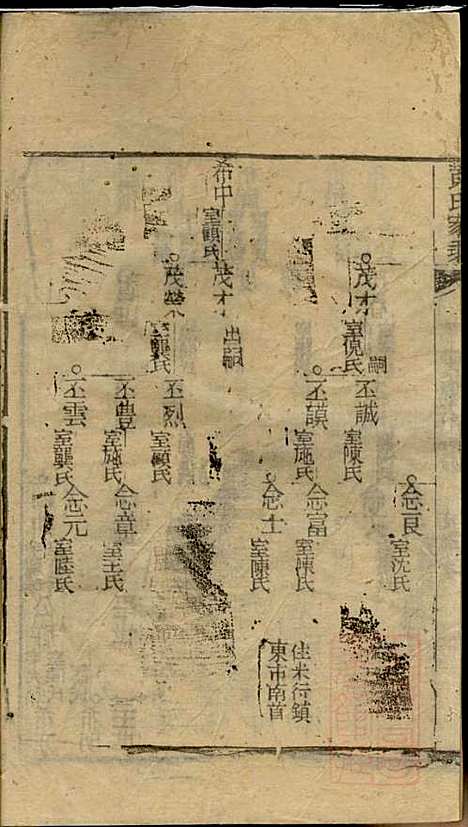 黃氏家乘
念良
室沈氏
茂才
嗣
室倪氏
丕誠
室陳氏
丕謨
室施氏
念富
室陳氏
念士
室陳氏
住米行鎮
東市南首
希中
室顧氏
茂才
出嗣
茂榮
丕烈
室顧氏
丕豊
室施氏
念章
室王氏
丕雲
室龔氏
念元
室陸氏